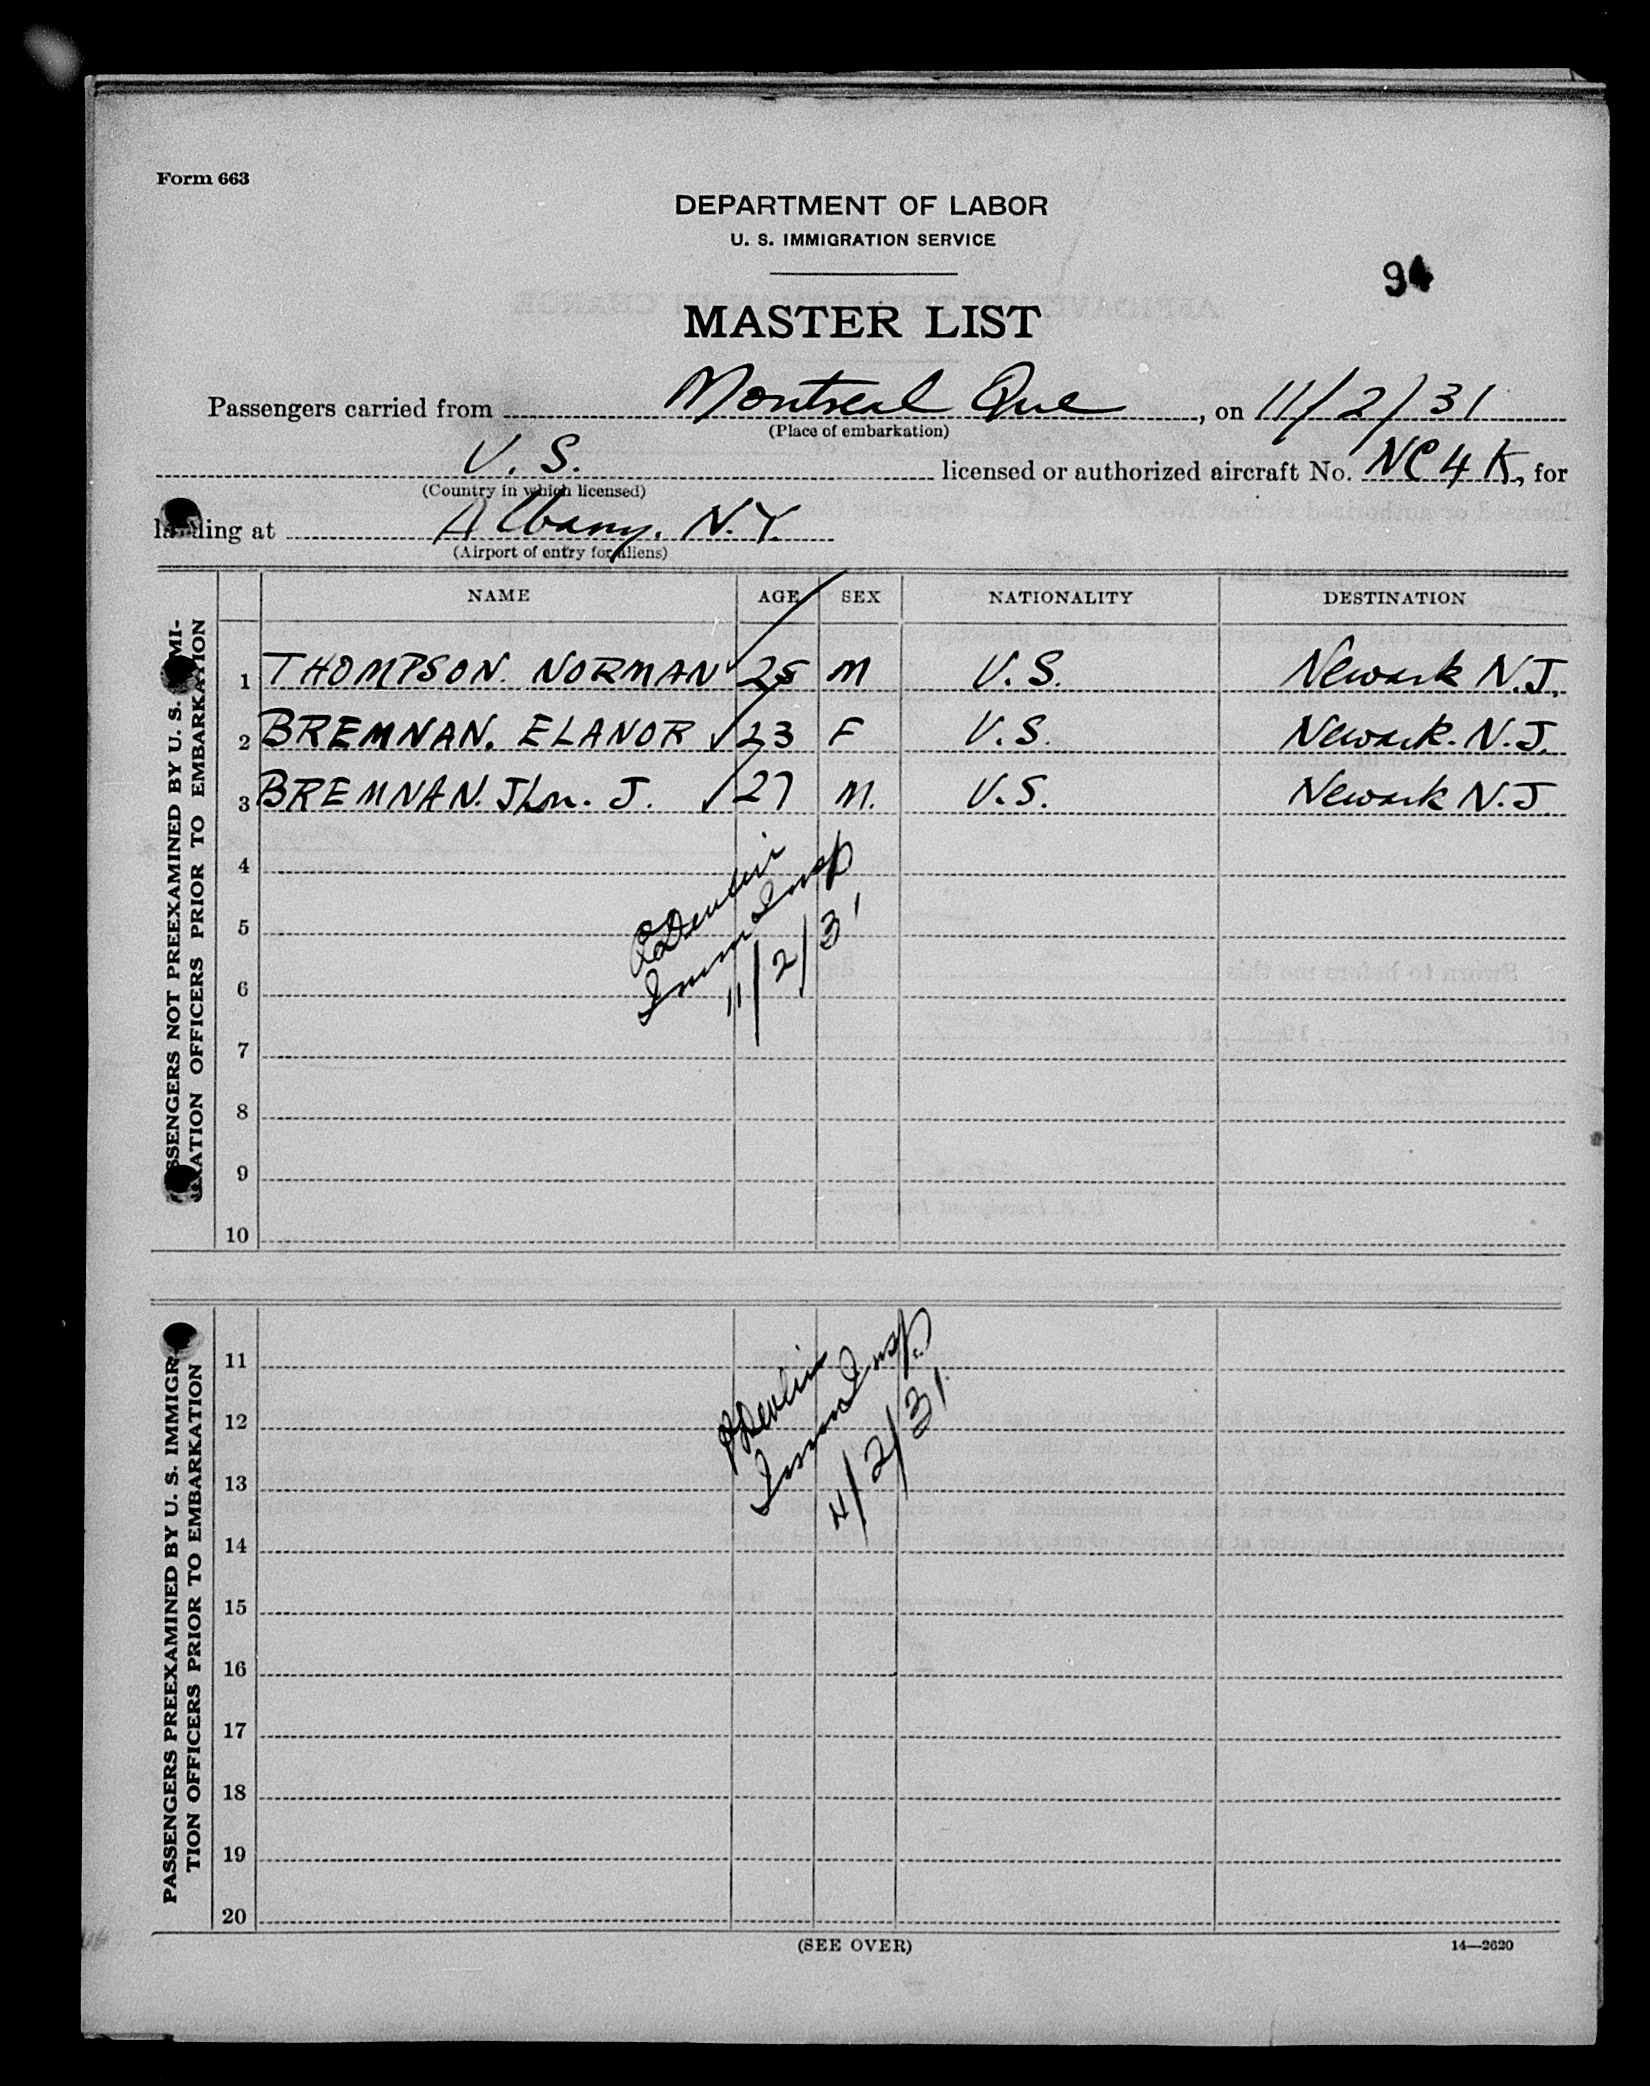 Form 663
DEPARTMENT OF LABOR
U. S. IMMIGRATION SERVICE
94
MASTER LIST
Passengers carried from Montreal Que, on 11/2/31
(Place of embarkation)
U. S. licensed or authorized aircraft No. NC 4 K, for
(Country in which licensed)
landing at Albany. N.Y.
(Airport of entry for aliens)
NAME AGE SEX NATIONALITY DESTINATION
PASSENGERS NOT PREEXAMINED BY U. S. IMMI-
GRATION OFFICERS PRIOR TO EMBARKATION
1 THOMPSON. NORMAN ✓ 25 M U.S. Newark N.J.
2 BREMNAN. ELANOR ✓ 23 F U.S. Newark. N.J.
3 BREMNAN. Jhn. J. ✓ 27 M. U.S. Newark N.J.
4
5
6
7
8
9
10
Devlin
Imm Insp
11/2/31
PASSENGERS PREEXAMINED BY U. S. IMMIGRA-
TION OFFICERS PRIOR TO EMBARKATION
11
12
13
14
15
16
17
18
19
20
Devlin
Imm Insp.
11/2/31.
(SEE OVER)
14—2620